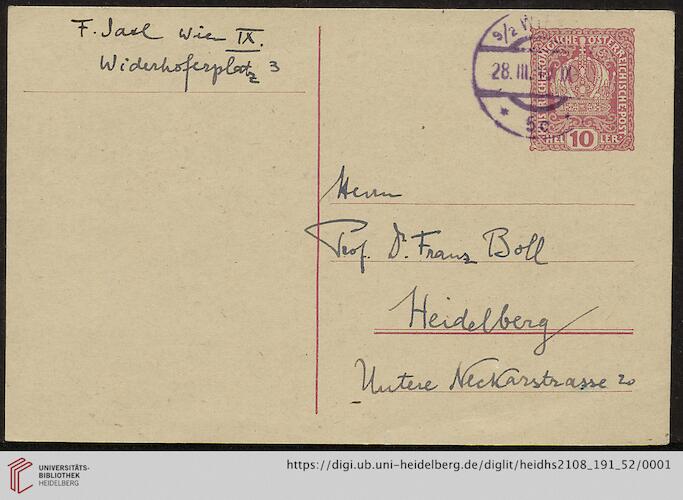 F. Jaxl Wien IX.
Widerhoferplatz 3
9/2 WI
28. III.
* 5c
KAISERLICHE KÖNIGLICHE ÖSTERREICHISCHE POST
HEL 10 LER
Herrn
Prof. Dr. Franz Boll
Heidelberg
Untere Neckarstrasse 20
UNIVERSITÄTS-
BIBLIOTHEK
HEIDELBERG
https://digi.ub.uni-heidelberg.de/diglit/heidhs2108_191_52/0001